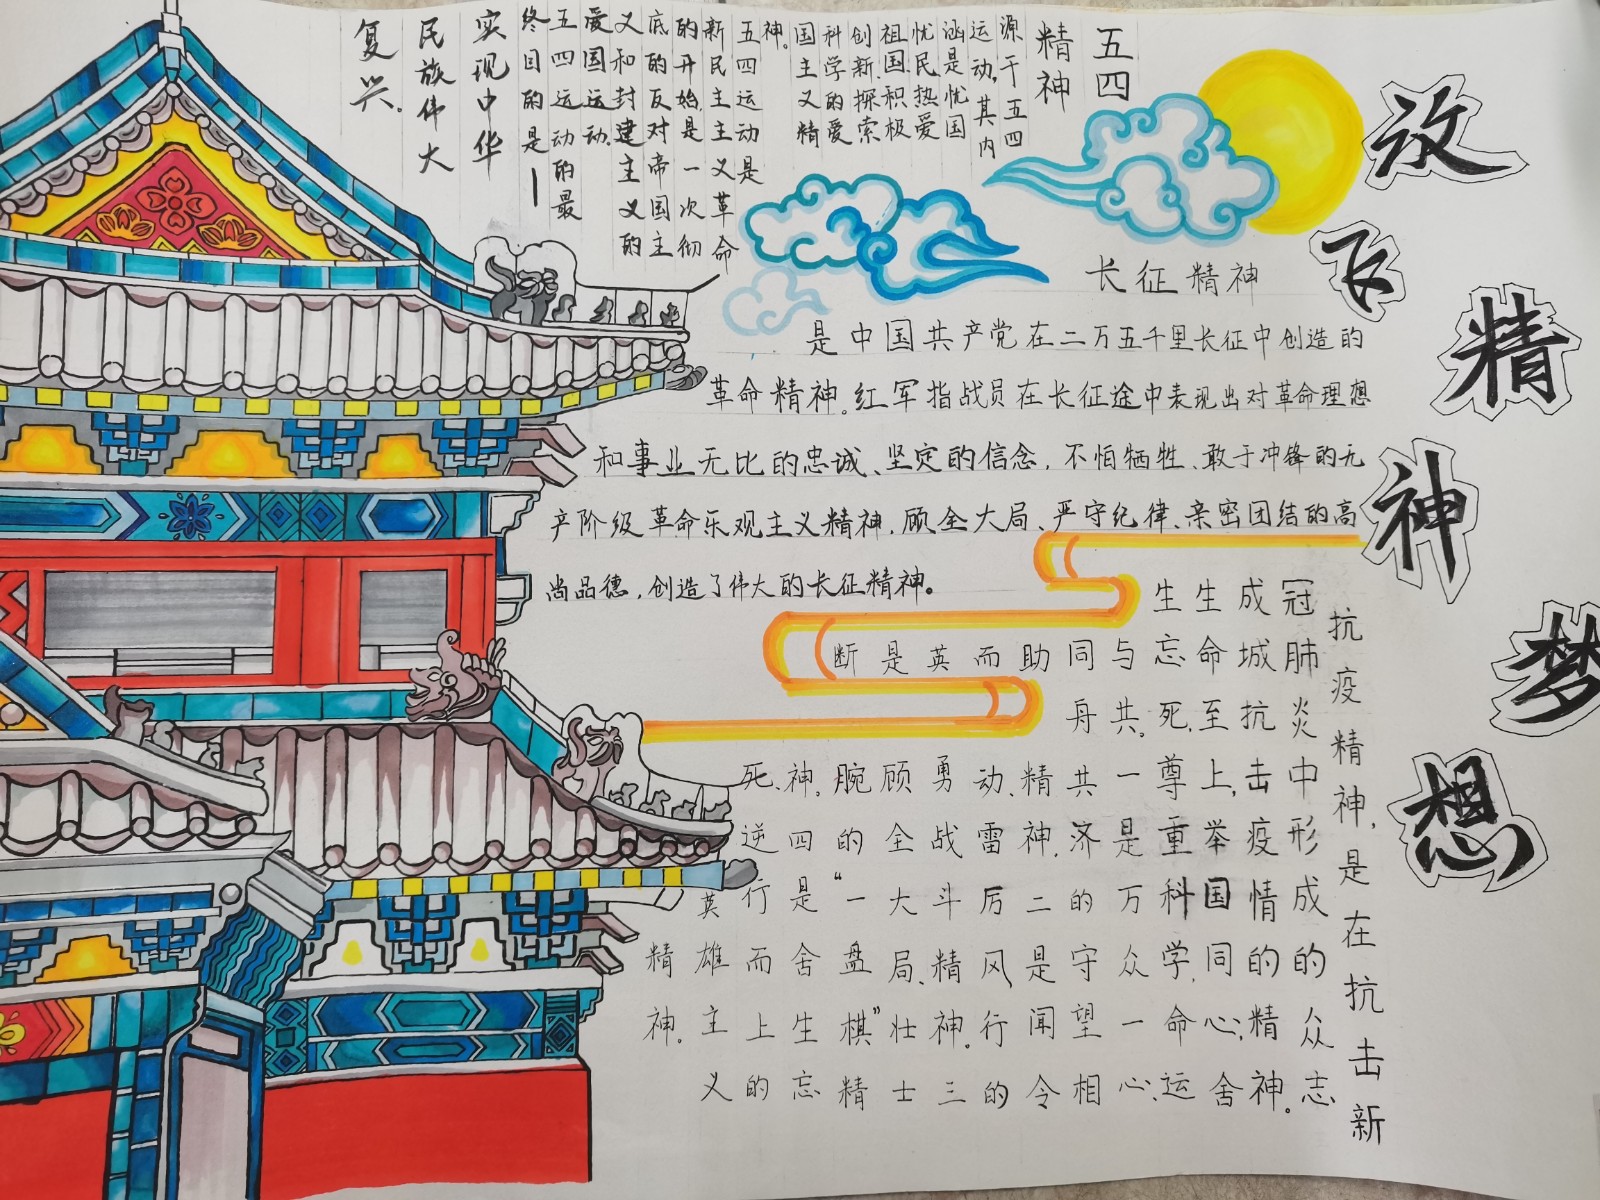 放飞精神梦想
五四
精神
源于五四
运动,其内
涵是忧国
忧民热爱
祖国.积极
创新.探索
科学的爱
国主义精
神。
五四运动是
新民主主义革命
的开始,是一次彻
底的反对帝国主
义和封建主义的
爱国运动。
五四运动的最
终目的是—
实现中华
民族伟大
复兴。
长征精神
是中国共产党在二万五千里长征中创造的
革命精神。红军指战员在长征途中表现出对革命理想
和事业无比的忠诚、坚定的信念,不怕牺牲、敢于冲锋的无
产阶级革命乐观主义精神,顾全大局、严守纪律、亲密团结的高
尚品德,创造了伟大的长征精神。
抗疫精神,是在抗击新
冠肺炎中形成的众志
成城抗击疫情的精神。
生命至上,举国同心,舍
生忘死,尊重科学,命运
与共。一是万众一心、
同舟共济的守望相
助精神,二是闻令
而动、雷厉风行的
英勇战斗精神。三
是顾全大局、壮士
断腕的“一盘棋”精
神。四是舍生忘
死、逆行而上的
英雄主义
精神。